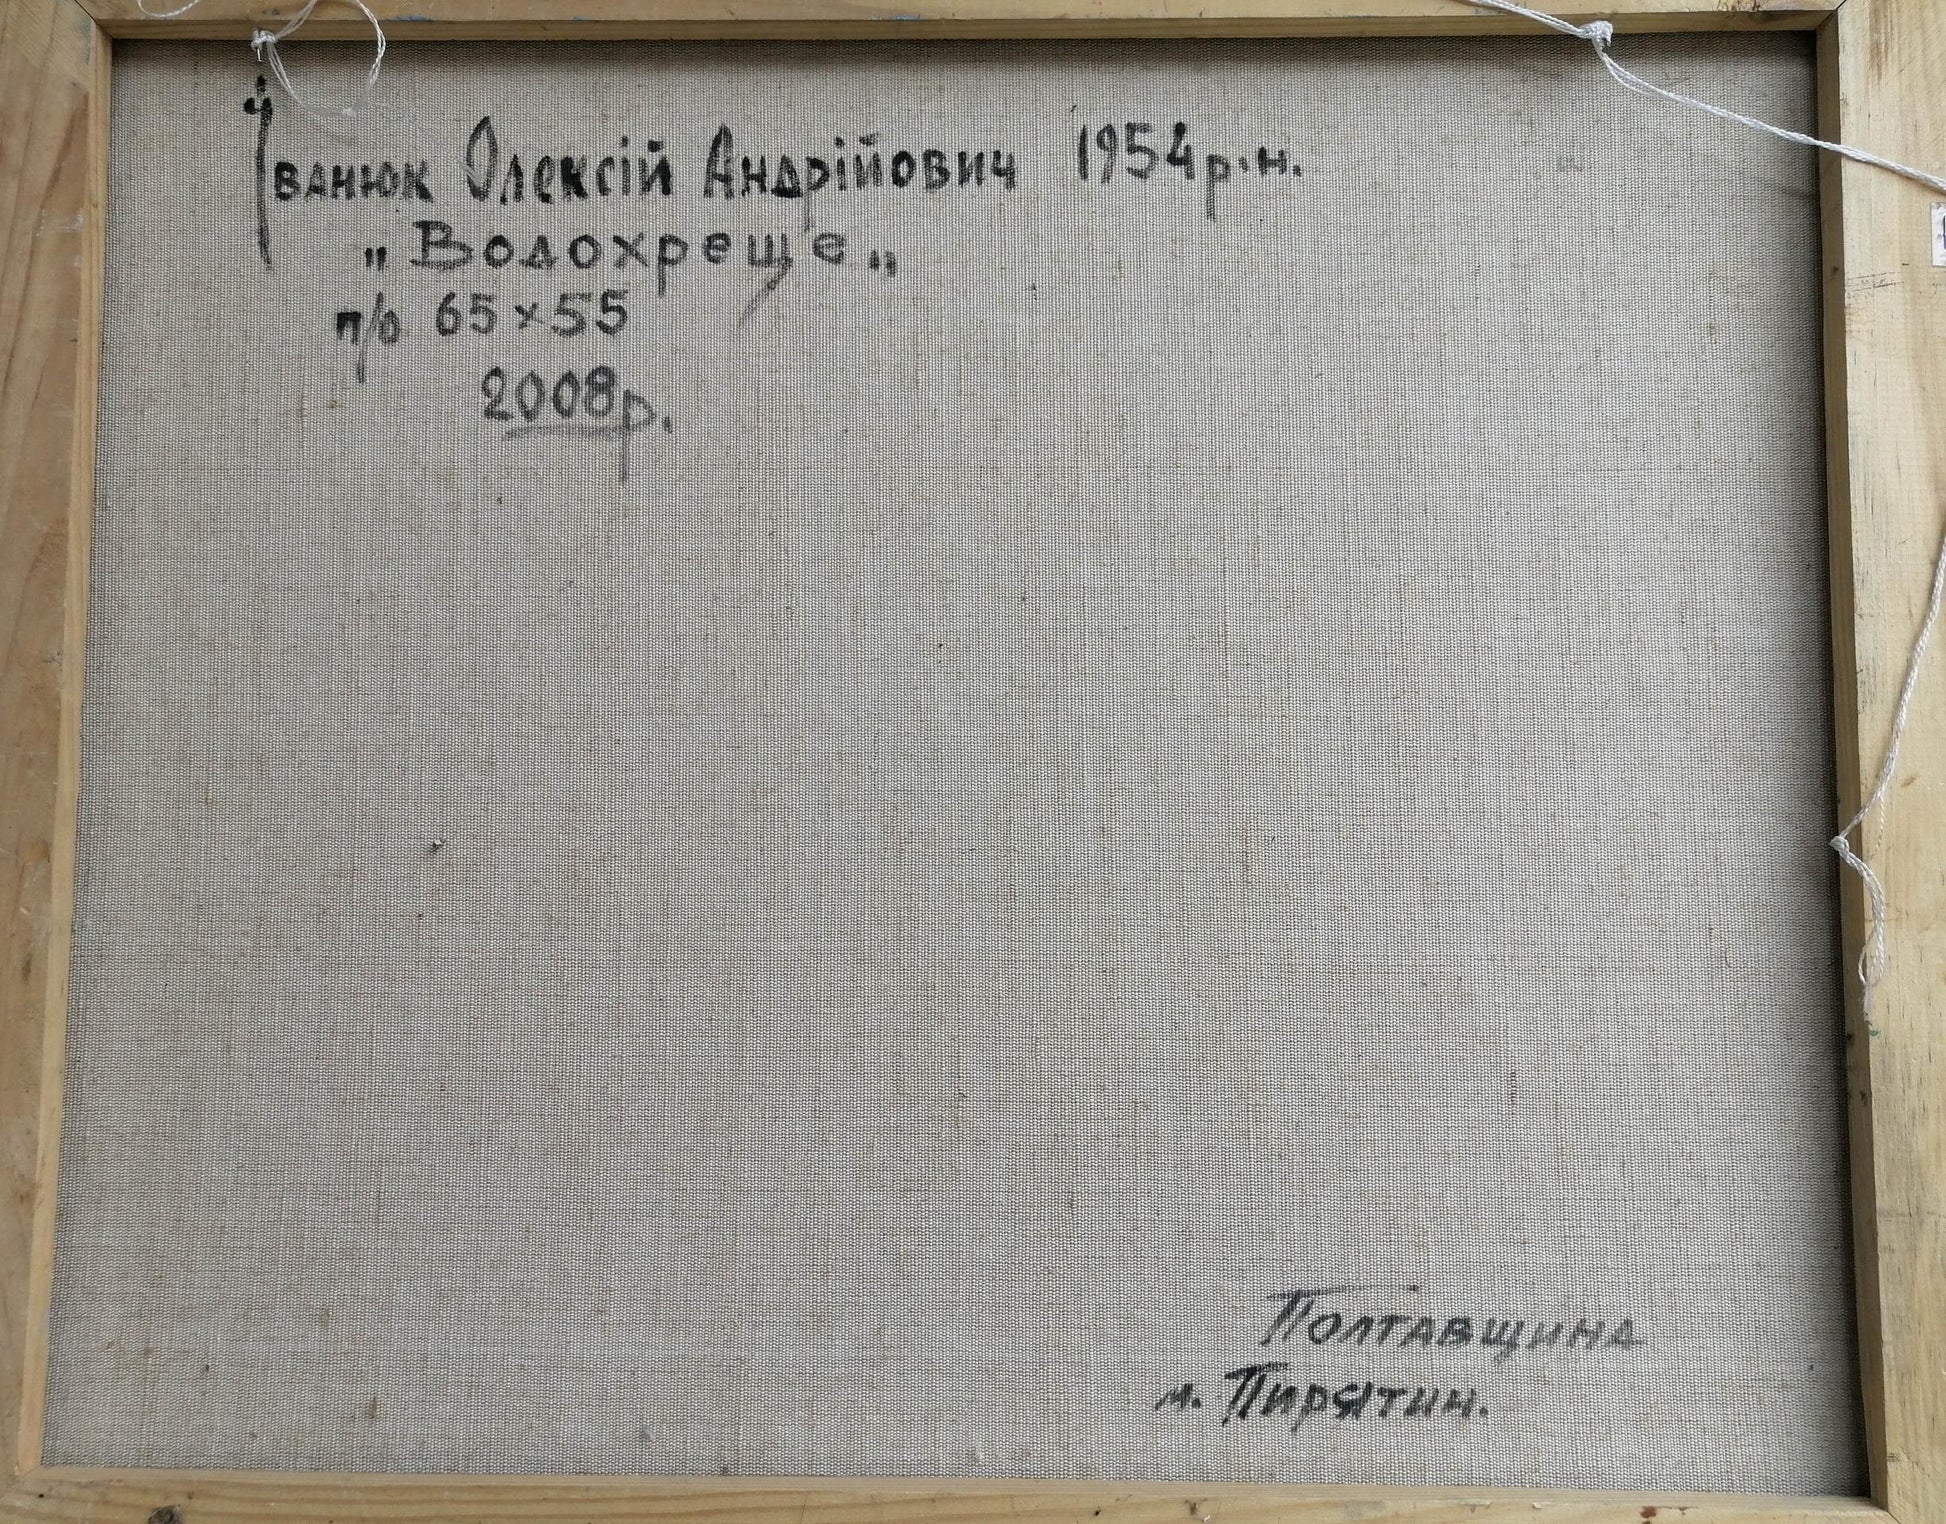 Іванюк Олексій Андрійович 1954р.н.
„Водохреще„
п/о 65×55
2008р.
Полтавщина
м. Пирятин.